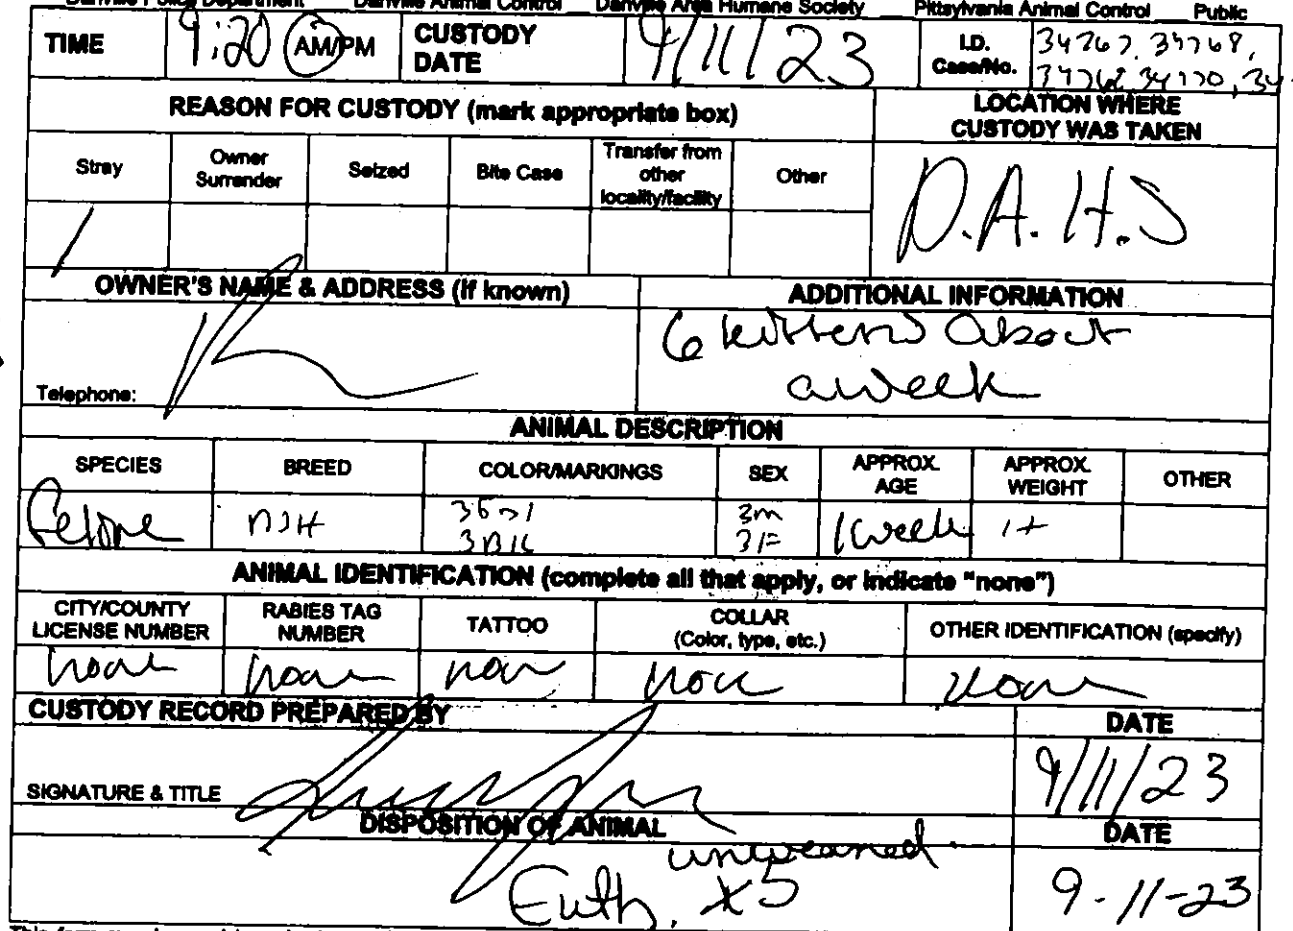 Danville Police Department Danville Animal Control Danville Area Humane Society Pittsylvania Animal Control Public
TIME 9:20 AM/PM CUSTODY DATE 9/11/23 I.D. Case/No. 34767, 34768,
REASON FOR CUSTODY (mark appropriate box)
LOCATION WHERE CUSTODY WAS TAKEN
Stray Owner Surrender Seized Bite Case Transfer from other locality/facility Other
D.A.H.S
OWNER'S NAME & ADDRESS (if known) ADDITIONAL INFORMATION
6 kittens About
a week
Telephone:
ANIMAL DESCRIPTION
SPECIES BREED COLOR/MARKINGS SEX APPROX. AGE APPROX. WEIGHT OTHER
Feline DSH 3m 1 week
3 Blk 3F
ANIMAL IDENTIFICATION (complete all that apply, or indicate "none")
CITY/COUNTY LICENSE NUMBER RABIES TAG NUMBER TATTOO COLLAR (Color, type, etc.) OTHER IDENTIFICATION (specify)
none none none none none
CUSTODY RECORD PREPARED BY DATE
SIGNATURE & TITLE 9/11/23
DISPOSITION OF ANIMAL DATE
unweaned.
Euth. x5 9-11-23